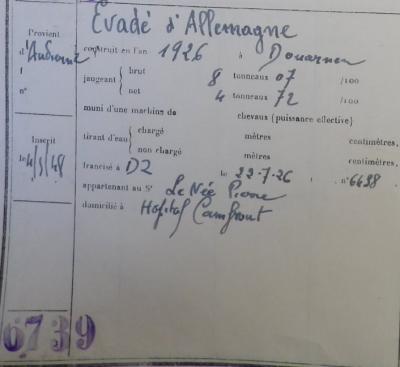 Évadé d'Allemagne
Provient
d'Audierne
f
n°
construit en l'an 1926 à Douarnen
jaugeant { brut 8 tonneaux 07 /100
net 4 tonneaux 72 /100
muni d'une machine de chevaux (puissance effective)
tirant d'eau { chargé mètres centimètres,
non chargé mètres centimètres,
Inscrit
le 4/3/48
francisé à DZ le 22-7-26, n° 6698
appartenant au Sr Le Née Pierre
domicilié à Hopital Camfrout
6739